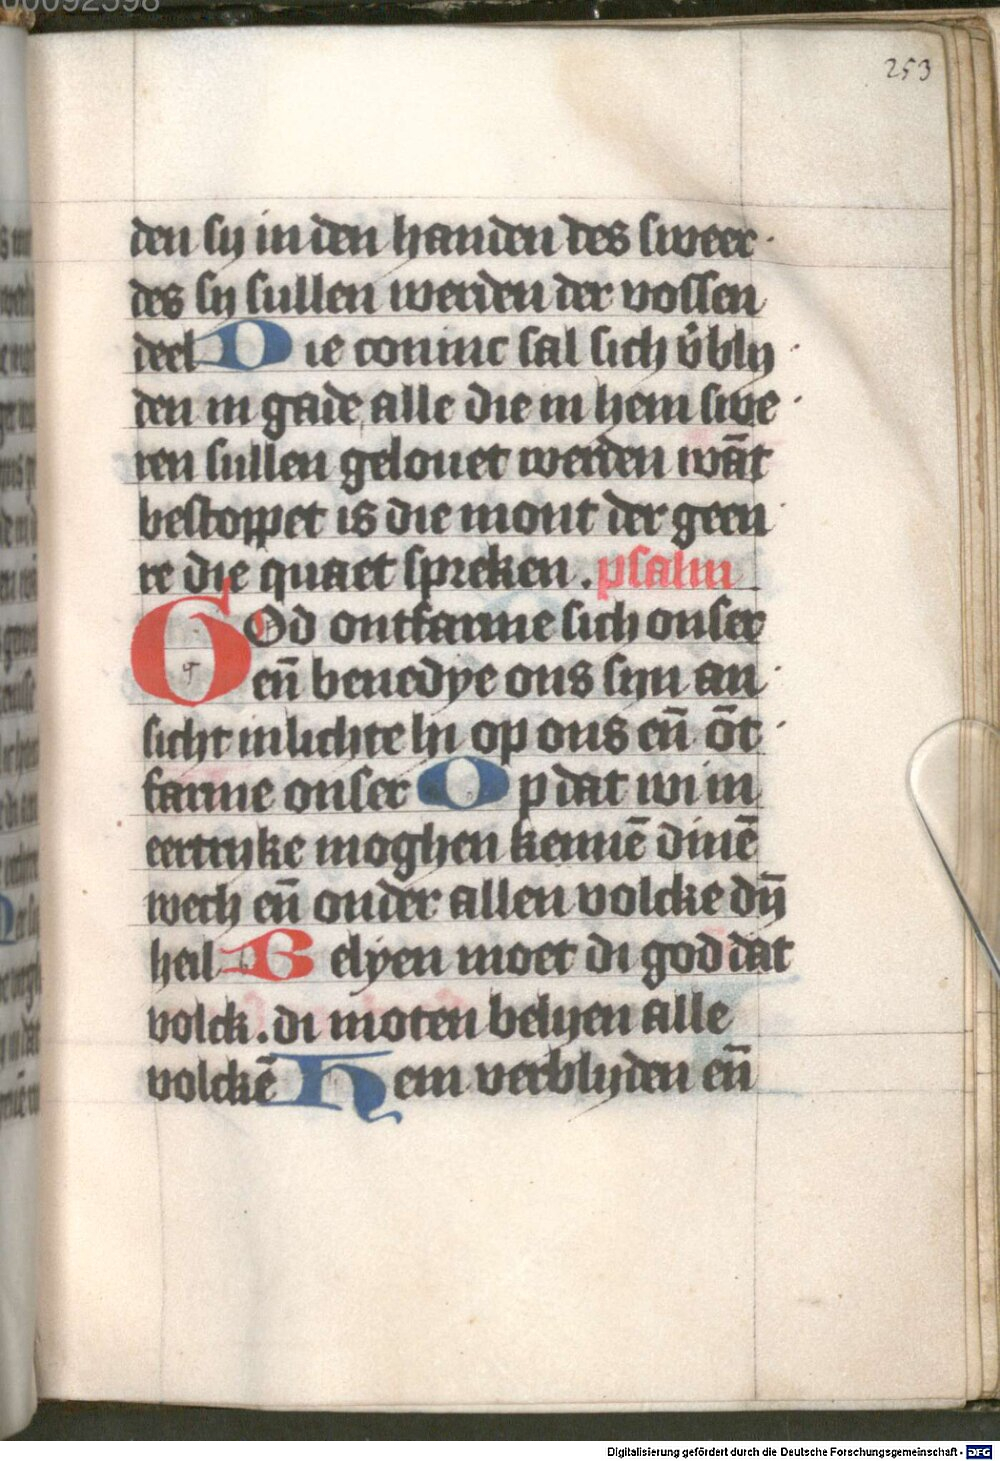 253
den sy in den handen des sweer
des sy sullen werden der vossen
deel Die coninc sal sich v̄bly
den in gade alle die in hem swe
ren sullen gelouet werden wāt
bestoppet is die mont der geen
re die quaet spreken. psalm
GOd ontfarme sich onser
en̄ benedye ons syn an
sicht inlichte hi op ons en̄ ōt
farme onser Op dat wi in
eertryke moghen kennē dinē
wech en̄ onder allen volcke dyn̄
heil Belyen moet di god dat
volck. di moten belyen alle
volckē Hem verblyden en̄
Digitalisierung gefördert durch die Deutsche Forschungsgemeinschaft - DFG